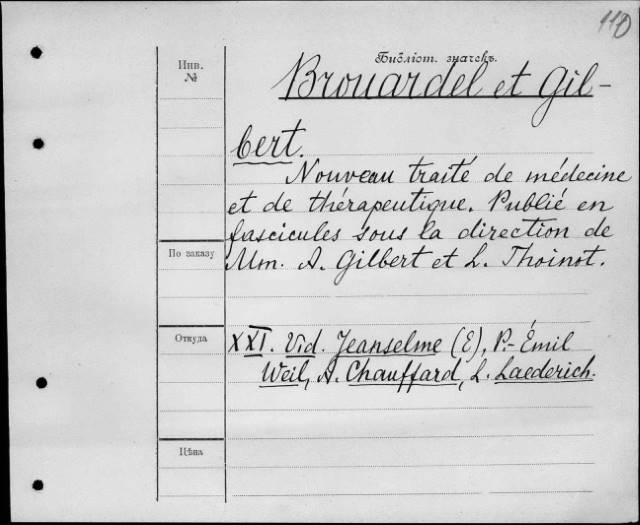 110
Библіот. значекъ.
Инв.
№
Brouardel et Gil-
bert.
Nouveau traité de médecine
et de thérapeutique. Publié en
fascicules sous la direction de
Mm. A. Gilbert et L. Thoinot.
По заказу
Откуда
XXI. Vid. Jeanselme (E), P.-Émil
Weil, A. Chauffard, L. Laederich.
Цѣна